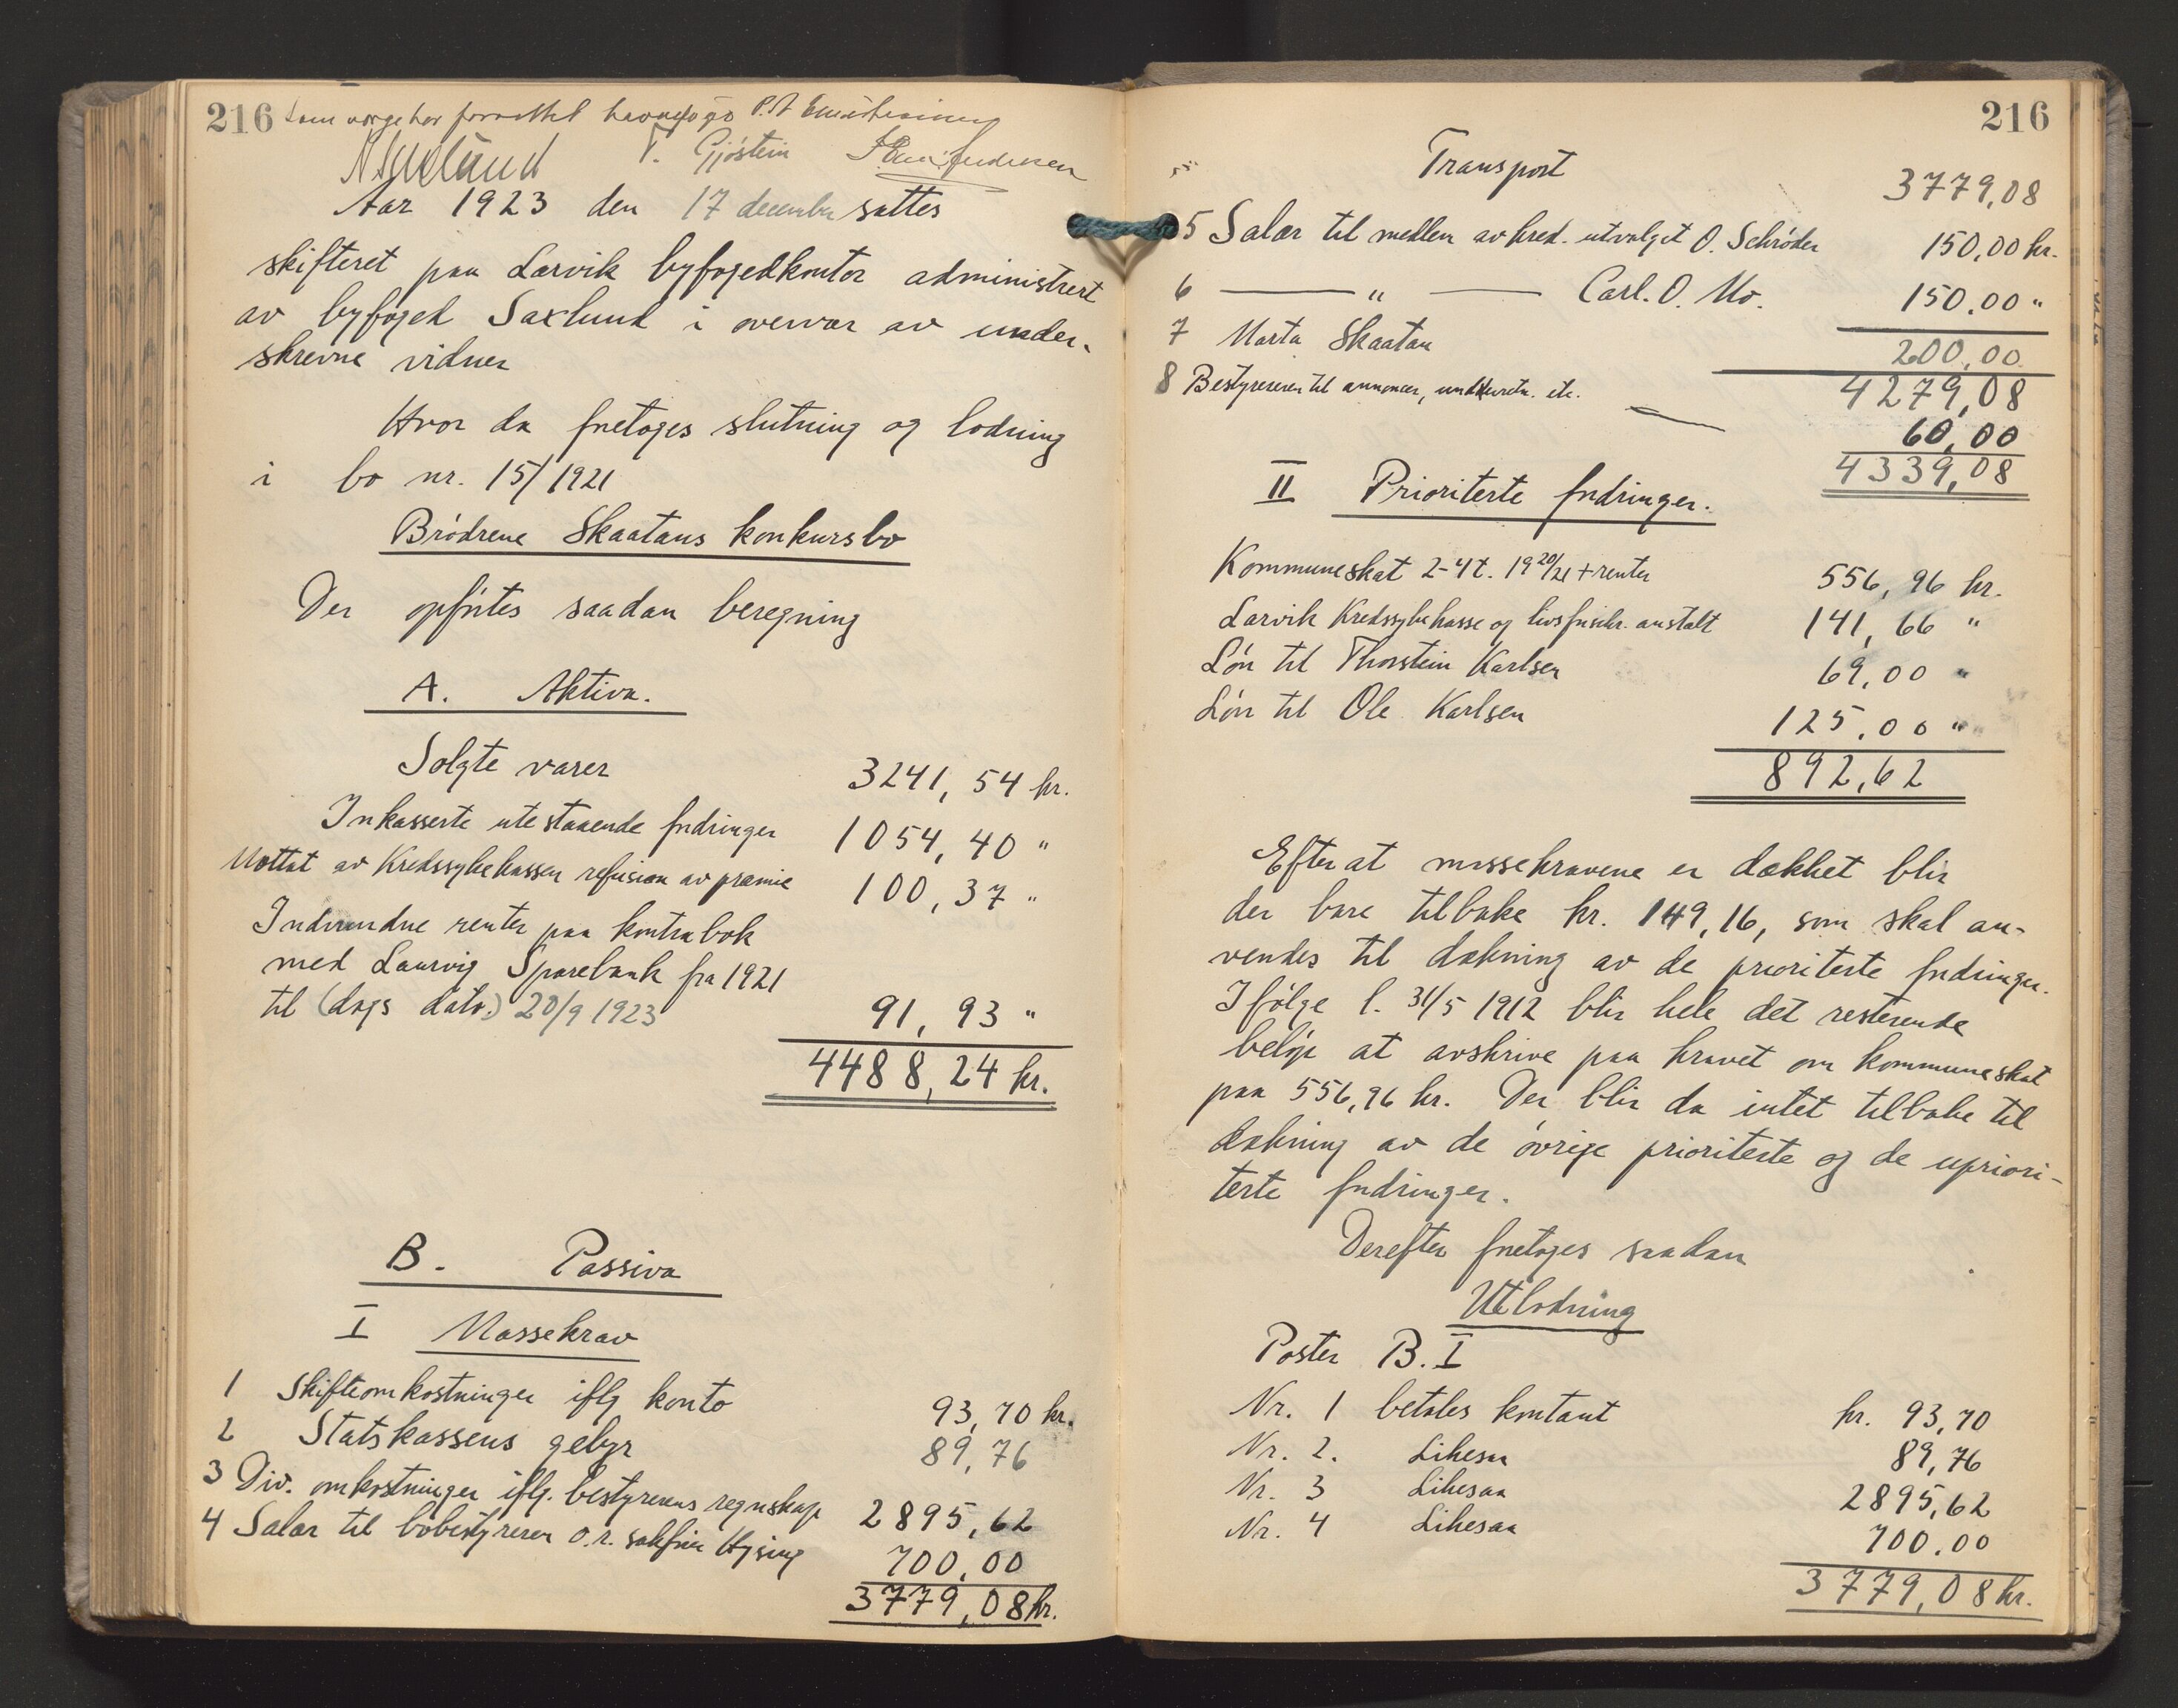 216 Som verge har forrettet havnefoged P. A.
T. Gjøstein
Aar 1923 den 17 december sattes
skifteret paa Larvik byfogedkontor administrert
av byfoged Saxlund i overvær av under-
skrevne vidner
Hvor da foretoges slutning og lodning
i bo nr. 15/1921
Brødrene Skaatans konkursbo
Der opførtes saadan beregning
A. Aktiva.
Solgte varer 3241,54 kr.
Inkasserte utestaaende fordringer 1054,40 "
Mottat av Kredssykekassen refusion av præmie 100,37 "
Indvundne renter paa kontrabok
med Laurvig Sparebank fra 1921
til (dags dato.) 20/9 1923 91,93 "
4488,24 kr.
B. Passiva
I Massekrav
1 Skifteomkostninger iflg konto 93,70 kr.
2 Statskassens gebyr 89,76
3 Div. omkostninger iflg. bestyrerens regnskap 2895,62
4 Salær til bobestyreren o.r. sakfører Hysing 700,00
3779,08 kr.
216
Transport 3779,08
5 Salær til medlem av kred. utvalget O. Schrøder 150,00 kr.
6 — " — Carl. O. Mo. 150,00 "
7 Marta Skaatan 200,00
4279,08
8 Bestyreren til annoncer, etc. 60,00
4339,08
II Prioriterte fordringer.
Kommuneskat 2-4 t. 1920/21 + renter 556,96 kr.
Larvik Kredssykekasse og livsforsikr. anstalt 141,66 "
Løn til Thorstein Karlsen 69,00 "
Løn til Ole Karlsen 125,00 "
892,62
Efter at massekravene er dækket blir
der bare tilbake kr. 149,16, som skal an-
vendes til dækning av de prioriterte fordringer.
Ifølge l. 31/5 1912 blir hele det resterende
beløp at avskrive paa kravet om kommuneskat
paa 556,96 kr. Der blir da intet tilbake til
dækning av de øvrige prioriterte og de upriori-
terte fordringer.
Derefter foretoges saadan
Utlodning
Poster B. I
Nr. 1 betales kontant kr. 93,70
Nr. 2. Likesaa 89,76
Nr. 3 Likesaa 2895,62
Nr. 4 Likesaa 700.00
3779,08 kr.